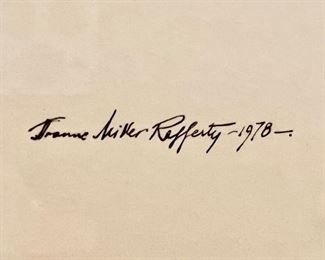 Joanne Miller Rafferty -1978-.